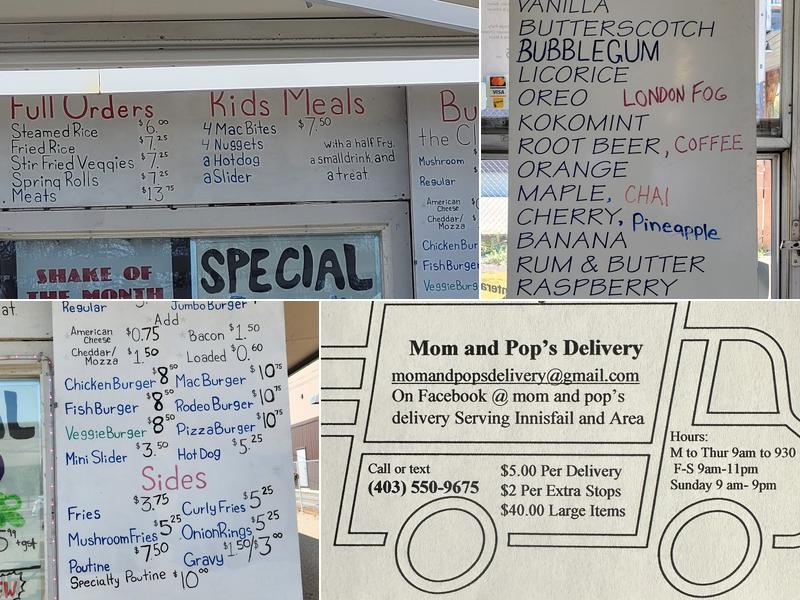 Full Orders
Steamed Rice $6.00
Fried Rice $7.25
Stir Fried Veggies $7.25
Spring Rolls $7.25
Meats $13.75
Kids Meals
4 Mac Bites $7.50
4 Nuggets
a Hotdog
a Slider
with a half Fry,
a small drink, and
a treat.
Bu
the Cl
Mushroom
Regular
American
Cheese
Cheddar/
Mozza
Chicken Bur
Fish Burge
Veggie Burg
SHAKE OF
THE MONTH
SPECIAL
VANILLA
BUTTERSCOTCH
BUBBLEGUM
LICORICE
OREO LONDON FOG
KOKOMINT
ROOT BEER, COFFEE
ORANGE
MAPLE, CHAI
CHERRY, Pineapple
BANANA
RUM & BUTTER
RASPBERRY
VISA
at.
Regular Jumbo Burger
Add
American
Cheese $0.75 Bacon $1.50
Cheddar/
Mozza $1.50 Loaded $0.60
Chicken Burger $8.50 Mac Burger $10.75
Fish Burger $8.50 Rodeo Burger $10.75
Veggie Burger $8.50 Pizza Burger $10.75
Mini Slider $3.50 Hot Dog $5.25
Sides
Fries $3.75 Curly Fries $5.25
Mushroom Fries $5.25 Onion Rings $5.25
Poutine $7.50 Gravy $1.50/$3.00
Specialty Poutine $10.00
Mom and Pop's Delivery
momandpopsdelivery@gmail.com
On Facebook @ mom and pop's
delivery Serving Innisfail and Area
Call or text
(403) 550-9675
$5.00 Per Delivery
$2 Per Extra Stops
$40.00 Large Items
Hours:
M to Thur 9am to 930
F-S 9am-11pm
Sunday 9 am- 9pm